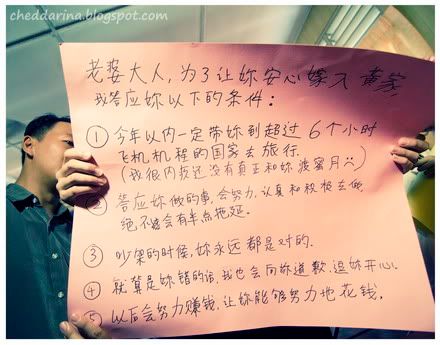 cheddarina.blogspot.com
老婆大人，为了让妳安心嫁入黄家，
我答应妳以下的条件：
① 今年以内一定带妳到超过6个小时
飞机机程的国家去旅行.
(我很内疚还没有真正和妳渡蜜月)
② 答应妳做的事，会努力，认真和积极去做
绝不会有半点拖延.
③ 吵架的时候，妳永远都是对的.
④ 就算是妳错的话，我也会向妳道歉，逗妳开心.
⑤ 以后会努力赚钱，让妳能够努力地花钱.